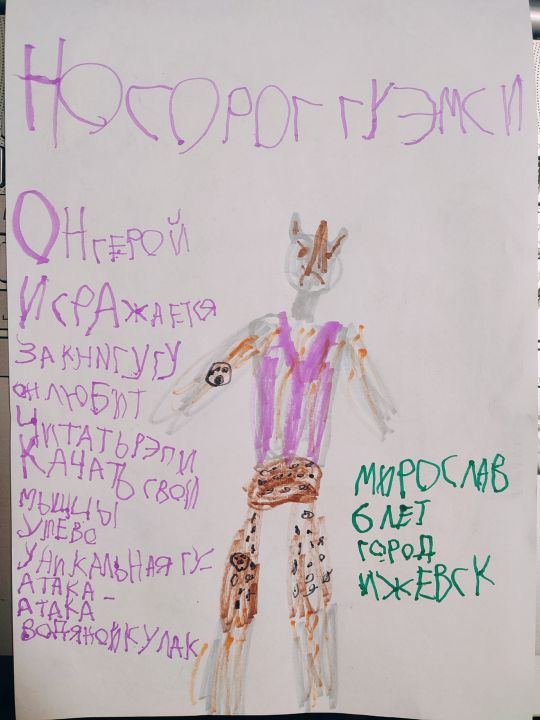 НОСОРОГ ГУЭМСИ
ОН ГЕРОЙ
И СРАЖАЕТСЯ
ЗА КНИГУ ГУ
ОН ЛЮБИТ
ЧИТАТЬ РЭП И
КАЧАТЬ СВОИ
МЫЩЦЫ
УПЕВО
УНИКАЛЬНАЯ ГУ-
АТАКА-
АТАКА
ВОДЯНОЙ КУЛАК
МИРОСЛАВ
6 ЛЕТ
ГОРОД
ИЖЕВСК